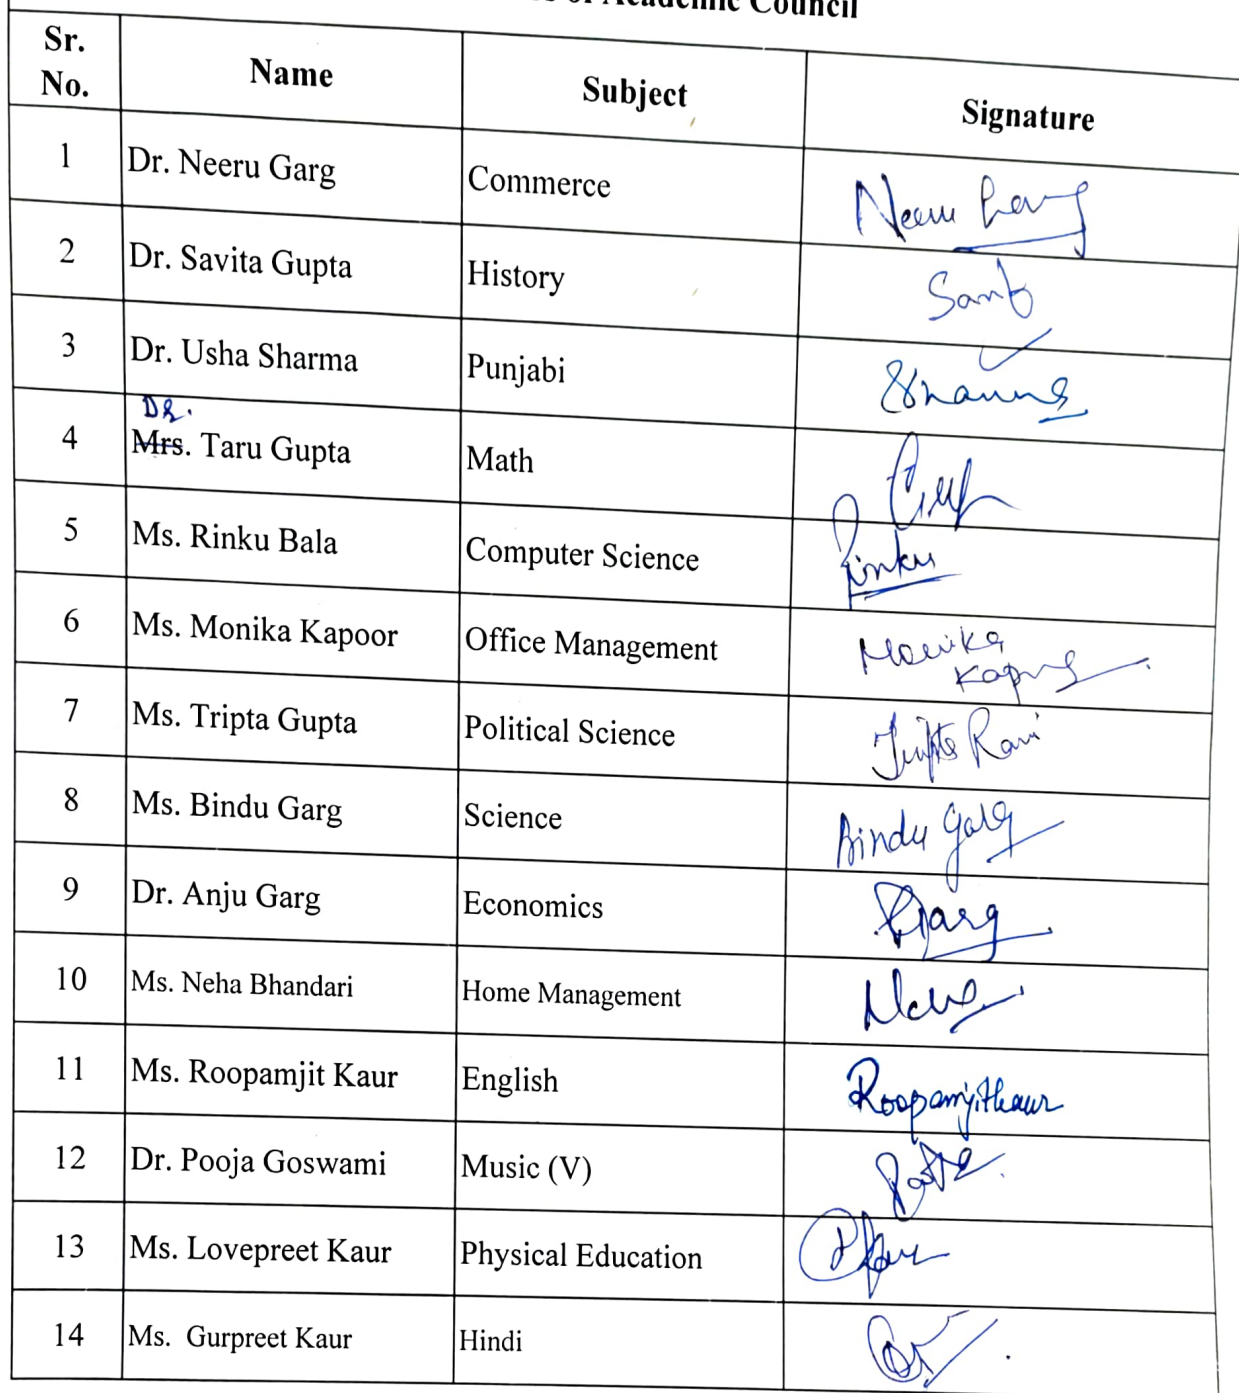 of Academic Council
Sr. No. Name Subject Signature
1 Dr. Neeru Garg Commerce Neeru Garg
2 Dr. Savita Gupta History
3 Dr. Usha Sharma Punjabi
DR.
4 Mrs. Taru Gupta Math
5 Ms. Rinku Bala Computer Science Rinku
6 Ms. Monika Kapoor Office Management Monika Kapoor
7 Ms. Tripta Gupta Political Science Tripta Rani
8 Ms. Bindu Garg Science Bindu Garg
9 Dr. Anju Garg Economics Garg
10 Ms. Neha Bhandari Home Management Neha
11 Ms. Roopamjit Kaur English Roopamjitkaur
12 Dr. Pooja Goswami Music (V)
13 Ms. Lovepreet Kaur Physical Education
14 Ms. Gurpreet Kaur Hindi